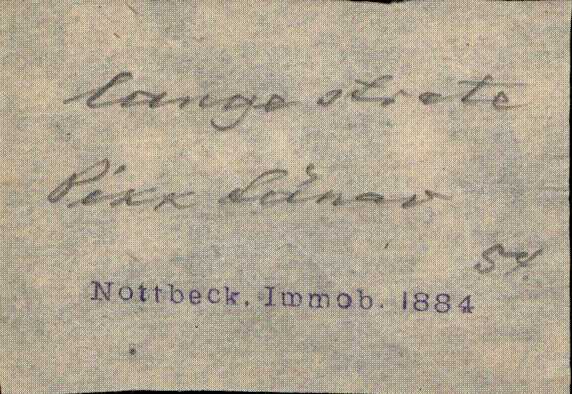 lange strate
Pikk tänav
54.
Nottbeck, Immob. 1884